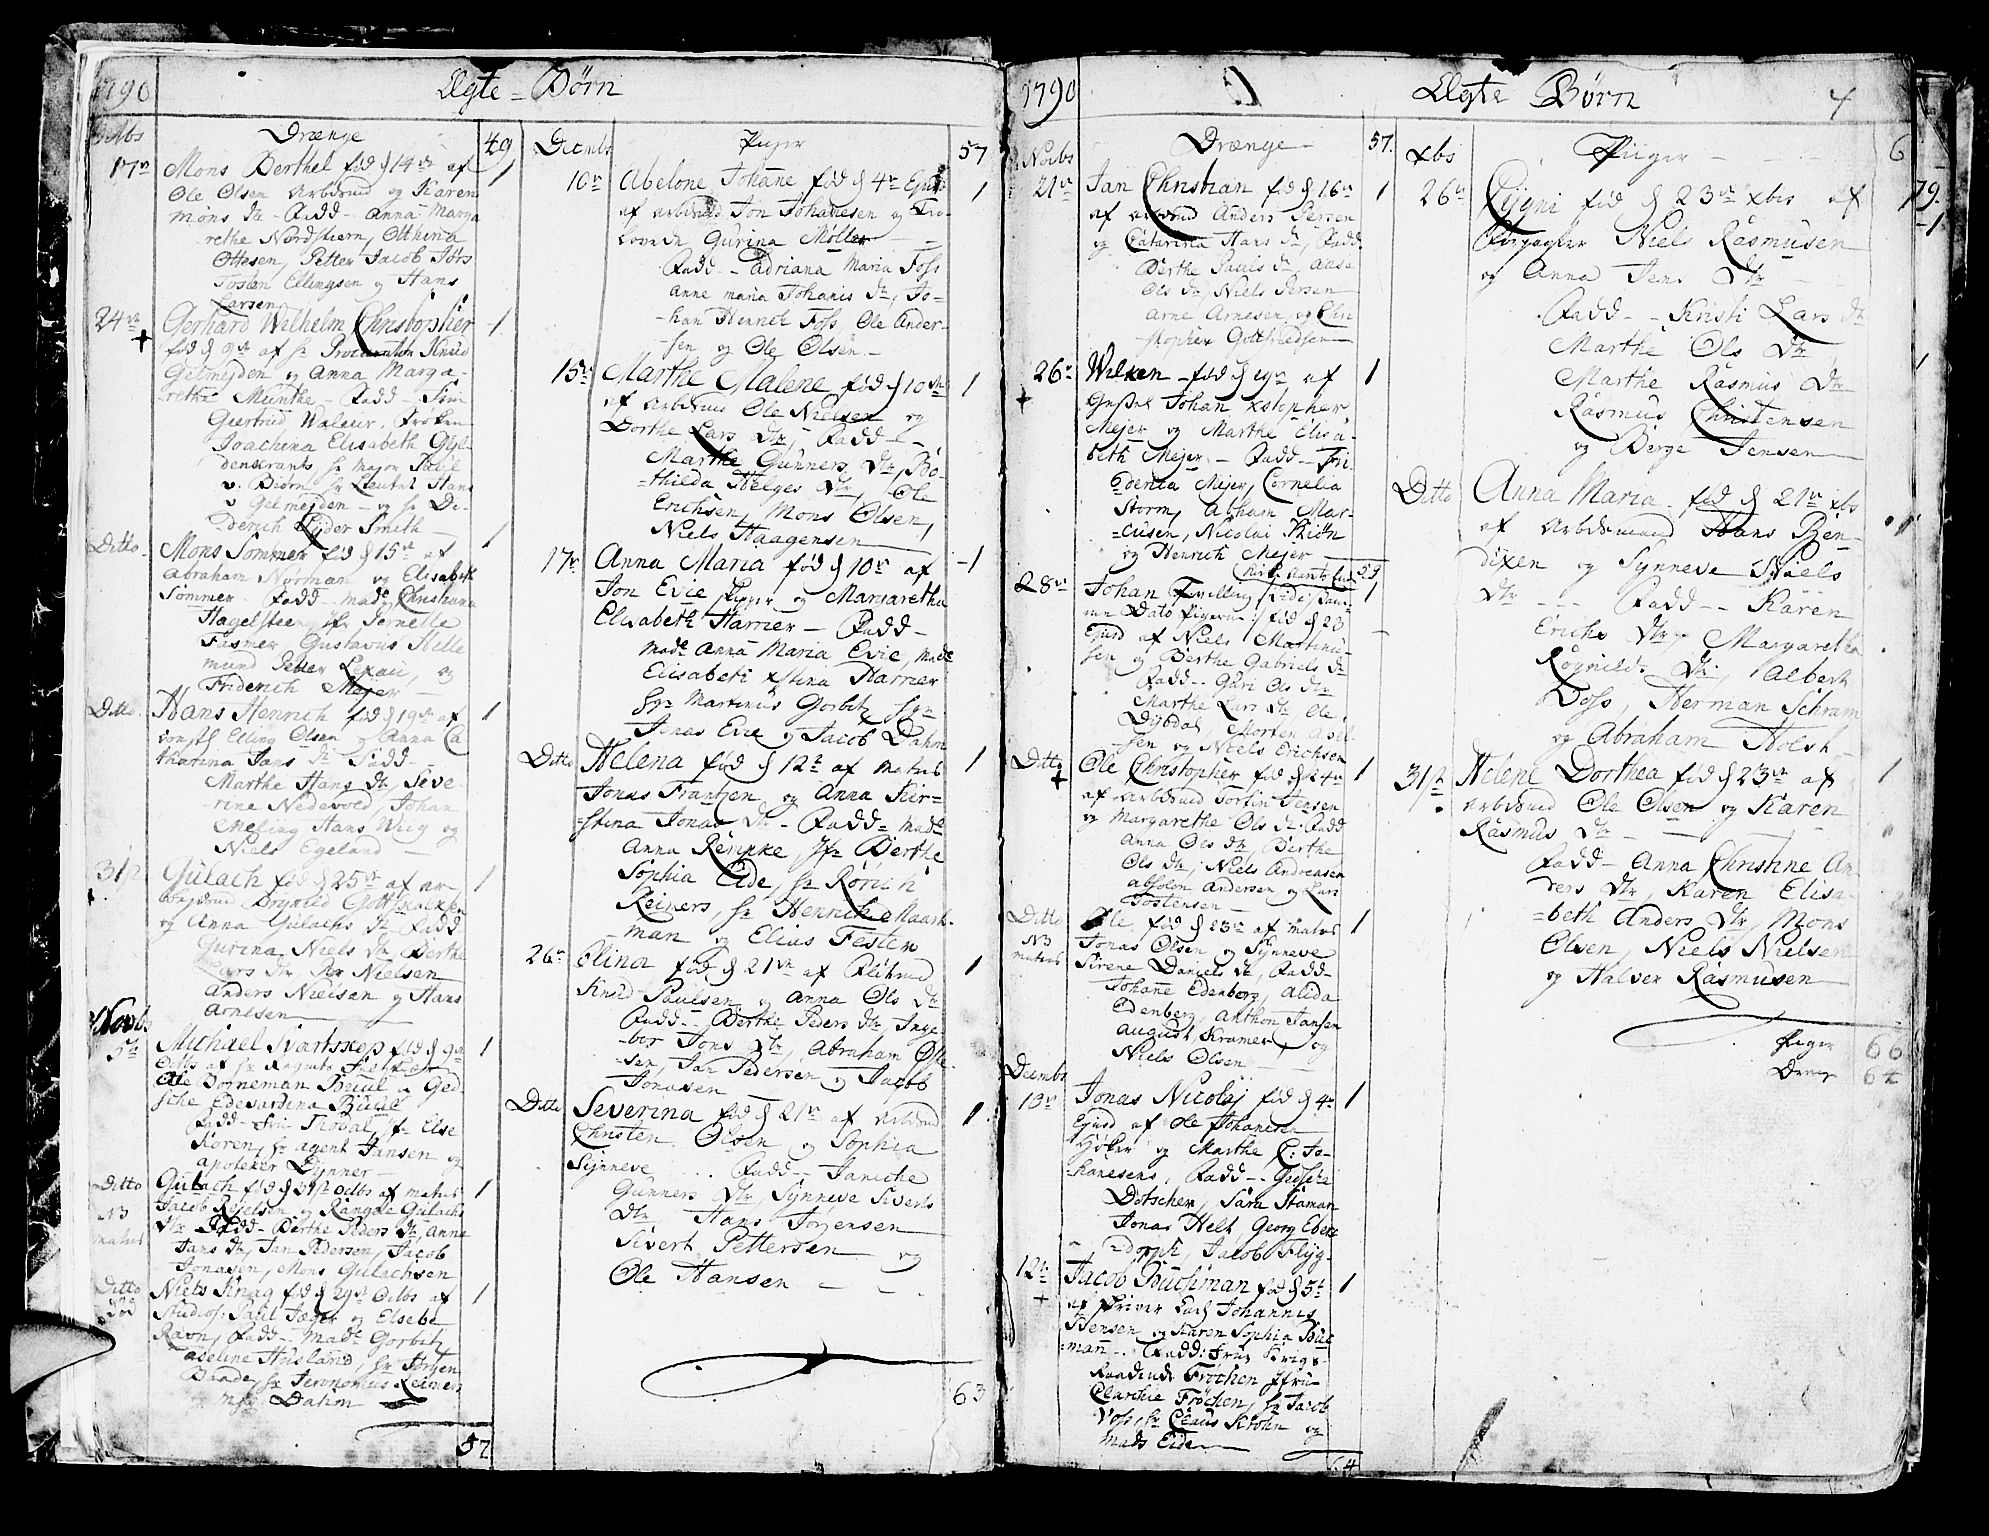 1790
Ægte-Børn
8tbs
Drænge
49
17de
Mons Berthel fød d 14de af
1
Ole Olsen Arbdmd og Karen
Mons dtr - Fadd - Anna Marga
rethe Nordstiern, Othina
Ottesen, Petter Jacob
Tosten Ellingsen og Hans
Larsen
24de
Gerhard Welhelm Christopher
1
fød d 9de af Sr Knud
Gelmeyden og Anna Marga-
rethe Munthe - Fadd -
Giertrud Waleur, Frøken
Joachena Elisabeth Gyl-
denkrants, Hr Major
v. Biørn Hr Hans
v Gelmeyden - og Hr Di-
derich Lyder Smith
Ditto
Mons Sommer fød d 15de af
1
Abraham Norman og Elisabeth
Sommer - Fadd - Made Christiana
Hagelsteen, Jfr Pernelle
Fasmer Gustavus Helle
mund Petter Lexau, og
Friderich Mejer
Ditto
Hans Henrich fød d 19de af
1
Elling Olsen og Anna Ca
tharina Jans dtr Fadd
Marthe Hans dtr, Seve-
rine Nedevold, Johan
Meling Hans Wiig og
Niels Egeland
31te
Gulach fød d 25de af Ar
1
Brynild
og Anna Gulachs dtr Fadd
Gurina Niels dtr Berthe
Lars dtr, Nielsen
Anders Nielsen og Hans
Arnesen
Novbs
5te
Michael Svartskop fød d 9de
1
8tbs af Hr
Ole Bornemann Buul og Ged
sche Edevardina Buul
Fadd - Jfr Else
Karen, Hr agent Jansen og
Apoteker Dyner
Ditto
NB
Matus
Gulach fød d 31te Octbs af Matus
1
Jacob Rejelsen og Rangele Gulachs
dtr Fadd - Berthe Peders dtr, Anna
Jans dtr, Jan Pedersen, Jacob
Jonasen, Mons Gulachsen
Ditto
død
Niels Knag fød d 29de Octbs af
1
Studios: Paul Jæger og Elsebe
Ravn, Fadd - Made Gorbitz
Adeline Husland, Hr Jørgen
Baade, Hr Jeronomus Reimers
og Msr Dahm
57

Decembs
Piger
57
10de
Abelone Johane fød d 4de Ejusd
1
af Arbdmd Jon Johanesen og
Gurina Møller
Fadd - Adriana Maria Foss
Anne Maria Johanis dtr, Jo-
han Henrich Foss Ole Ander-
sen, og Ole Olsen
15de
Marthe Malene fød d 10de
1
af Arbdmd Ole Nielsen og
Dorthe Lars dtr, Fadd -
Marthe Gunners dtr, Bo-
thilda Helges dtr, Ole
Erichsen, Mons Olsen,
Niels Haagensen
17de
Anna Maria fød d 10de af
1
Jon Evie og Margaretha
Elisabeth Harrier - Fadd -
Made Anna Maria Evie, Made
Elisabeth Xstina Harrier
Sgr Martinus Gorbitz Sgr
Jonas Evie og Jacob Dahm
Ditto
Helena fød d 12te af Matus
1
Jonas Frantzen og Anna Kier-
stina Jonas dtr - Fadd - Made
Anna Reincke, Jfr Berthe
Sophia Eide, Hr Rørich
Reiners, Hr Henrich Maart-
man og Elias Fester
26de
Elina fød d 21de af
1
Knud Paulsen og Anna Ols dtr
Fadd - Berthe Peders dtr, Inge
bor Jons dtr, Abraham
sen, Jan Pedersen og Jacob
Jonasen
Ditto
Severina fød d 21de af Arbdmd
1
Christen Olsen og Sophia
Synneve . . . Fadd - Janiche
Gunners dtr, Synneve Siverts
dtr, Hans Jørgensen
Sivert Pettersen og
Ole Hansen
63

1790
Ægte Børn
4
Novbs
Drænge
57.
21de
Jan Christian fød d 16de
1
af Arbdmd Anders Persen
og Catarina Hans dtr, Fadd
Berthe Pauls dtr, Anse
Ols dtr, Niels Persen
Arne Arnesen, og Chri
stopher Gottfriedsen
26de
Wilken fød d 19de af
1
Johan Xstopher
Mejer og Marthe Elisa-
beth Mejer - Fadd - Fri
derica Mejer, Cornelia
Storm, Abham Mar-
cusen, Nicolai
og Henrich Mejer
28de
Johan Tvilling
1
Dato Pigerne: fød d 23
Ejusd af Niels Martinu-
sen og Berthe Gabriels dtr
Fadd - Guri Ols dtr
Marthe Lars dtr, Ole
Dybdal, Morten
sen og Niels Erichsen
Ditto
Ole Christopher fød d 24de
1
af Arbdmd Torfin Jensen
og Margarethe Ols dtr: Fadd
Anna Ols dtr, Berthe
Ols dtr, Niels Andreasen
Absolon Andersen og Lars
Tostensen
Ditto
NB
matus
Ole fød d 23de af Matus
1
Jonas Olsen og Synneve
Sirene Daniels dtr, Fadd -
Johane Edenberg, Alida
Edenberg, Anthon Jansen
August Kramer, og
Niels Olsen
Decembs
13de
Jonas Nicolaj fød d 4de
1
Ejusd af Ole Johanesen
Høker og Marthe C: Jo-
hanesens, Fadd - Gedsche
Døtscher, Sara Staman
Jonas Helt, Georg
Jacob Flyg
12te
Jacob Buchman fød d 5te
1
af Skriver Carl Johannis
Bensen og Karen Sophia Buc
man - Fadd: Frue Krigs-
Raadinde Frochen Jfru
Clarchie Frochen, Hr Jacob
Voss, Hr Claus Krohn og
Mads Eide
64

xbs
Piger
6
26de
Signi fød d 23de xbris af
79.
1
Niels Rasmusen
og Anna Jens dtr
Fadd - Kristi Lars dtr
Marthe Ols dtr
Marthe Rasmus dtr
Rasmus Christensen
og Børge Jensen
Ditto
Anna Maria fød d 21de xbs
1
af Arbdsmand Hans Ben-
dixen og Synneve Niels
dtr - Fadd - Karen
Erichs dtr, Margaretha
Rognilds dtr, Albert
Doss, Herman Schram
og Abraham Holst
31te
Helene Dorthea fød d 23de af
1
Arbdmd Ole Olsen og Karen
Rasmus dtr
Fadd - Anna Christine An-
ders dtr, Karen Elisa-
beth Anders dtr, Mons
Olsen, Niels Nielsen
og Halver Rasmusen
Piger 66
Dreng 64